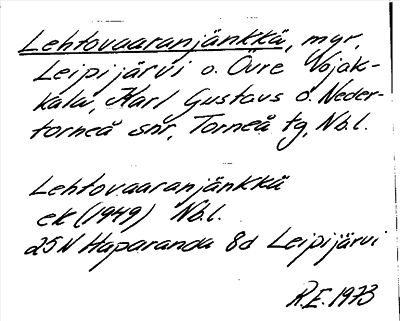 Lehtovaaranjänkkä, myr,
Leipijärvi o. Övre Vojak-
kala, Karl Gustavs o. Neder-
torneå snr, Torneå tg, Nb.l.
Lehtovaaranjänkkä
ek (1949) Nb.l.
25N Haparanda 8d Leipijärvi
R.E. 1973